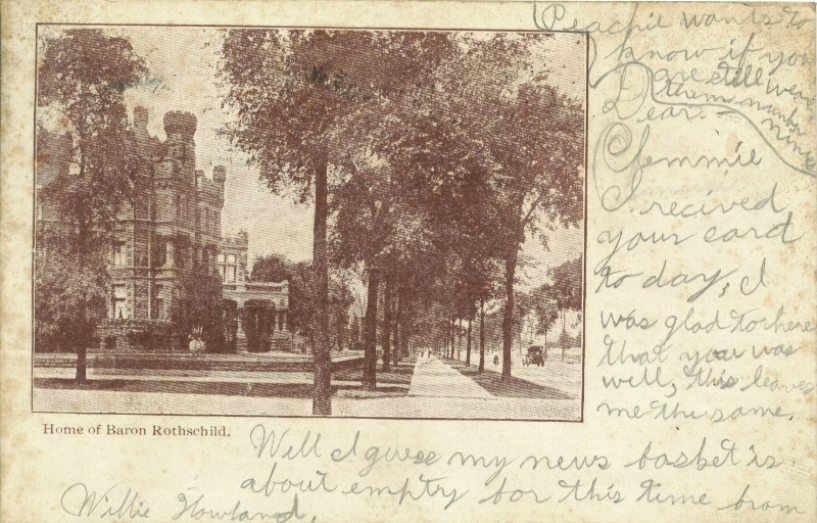 Peachie wants to
know if you
are still wear
them number
nines
Dear
Clemmie
I recived
your card
to day, I
was glad to here
that you was
well, this leaves
me the same.
Home of Baron Rothschild.
Well I guess my news basket is
about empty for this time from
Willie Howland.